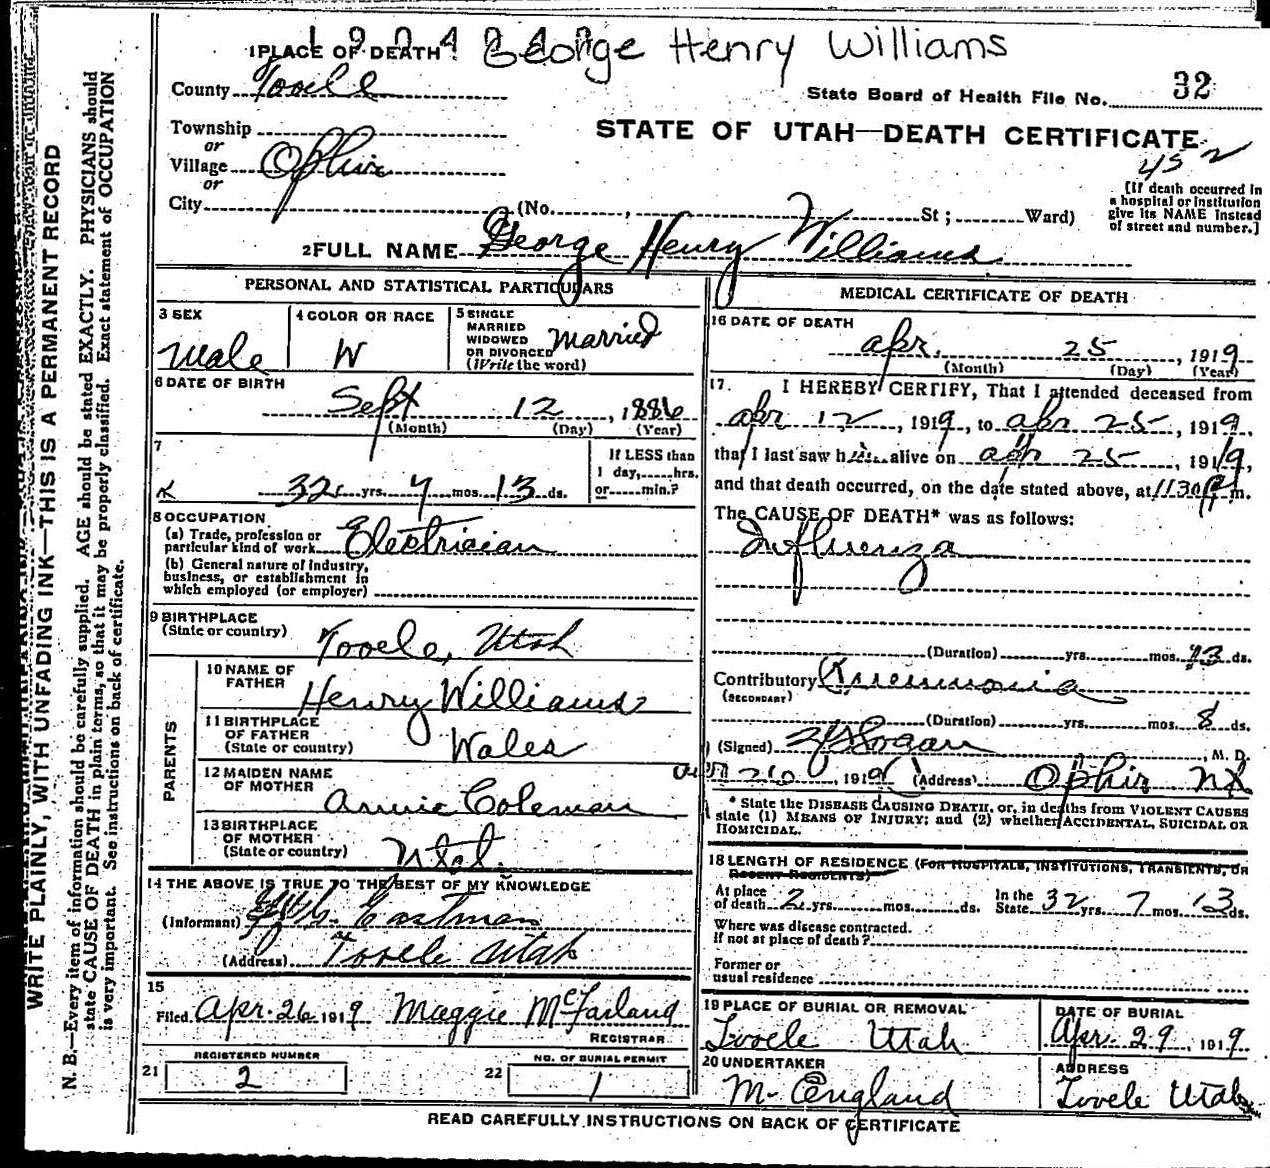 1 PLACE OF DEATH George Henry Williams
County Tooele
State Board of Health File No. 32
Township
or
Village Ophir
or
City
STATE OF UTAH—DEATH CERTIFICATE
452
[If death occurred in a hospital or institution give its NAME instead of street and number.]
(No. , St ; Ward)
2 FULL NAME George Henry Williams
PERSONAL AND STATISTICAL PARTICULARS
3 SEX
Male
4 COLOR OR RACE
W
5 SINGLE
MARRIED
WIDOWED
OR DIVORCED
(Write the word)
Married
6 DATE OF BIRTH
Sept 12, 1886
(Month) (Day) (Year)
7
32 yrs. 7 mos. 13 ds.
If LESS than
1 day, hrs.
or min.?
8 OCCUPATION
(a) Trade, profession or
particular kind of work Electrician
(b) General nature of industry,
business, or establishment in
which employed (or employer)
9 BIRTHPLACE
(State or country) Tooele, Utah
PARENTS
10 NAME OF
FATHER Henry Williams
11 BIRTHPLACE
OF FATHER
(State or country) Wales
12 MAIDEN NAME
OF MOTHER Annie Coleman
13 BIRTHPLACE
OF MOTHER
(State or country) Utah.
14 THE ABOVE IS TRUE TO THE BEST OF MY KNOWLEDGE
(Informant) Eastman
(Address) Tooele Utah
15
Filed Apr. 26 1919 Maggie McFarland
REGISTRAR
REGISTERED NUMBER
21 2
NO. OF BURIAL PERMIT
22 1
MEDICAL CERTIFICATE OF DEATH
16 DATE OF DEATH
Apr. 25, 1919
(Month) (Day) (Year)
17. I HEREBY CERTIFY, That I attended deceased from
Apr 12, 1919, to Apr 25, 1919,
that I last saw him alive on Apr 25, 1919,
and that death occurred, on the date stated above, at 1130 P m.
The CAUSE OF DEATH* was as follows:
Influenza
(Duration) yrs. mos. 13 ds.
Contributory Pneumonia
(SECONDARY)
(Duration) yrs. mos. 8 ds.
(Signed) M. D.
26, 1919 (Address) Ophir
* State the DISEASE CAUSING DEATH, or, in deaths from VIOLENT CAUSES
state (1) MEANS OF INJURY; and (2) whether ACCIDENTAL, SUICIDAL OR
HOMICIDAL.
18 LENGTH OF RESIDENCE (FOR HOSPITALS, INSTITUTIONS, TRANSIENTS, OR
RECENT RESIDENTS)
At place
of death 2 yrs. mos. ds.
In the
State 32 yrs. 7 mos. 13 ds.
Where was disease contracted.
if not at place of death?
Former or
usual residence
19 PLACE OF BURIAL OR REMOVAL
Tooele Utah
DATE OF BURIAL
Apr. 29, 1919.
20 UNDERTAKER
M. England
ADDRESS
Tooele Utah
READ CAREFULLY INSTRUCTIONS ON BACK OF CERTIFICATE
WRITE PLAINLY, WITH UNFADING INK—THIS IS A PERMANENT RECORD
N. B.—Every item of information should be carefully supplied. AGE should be stated EXACTLY. PHYSICIANS should
state CAUSE OF DEATH in plain terms, so that it may be properly classified. Exact statement of OCCUPATION
is very important. See instructions on back of certificate.